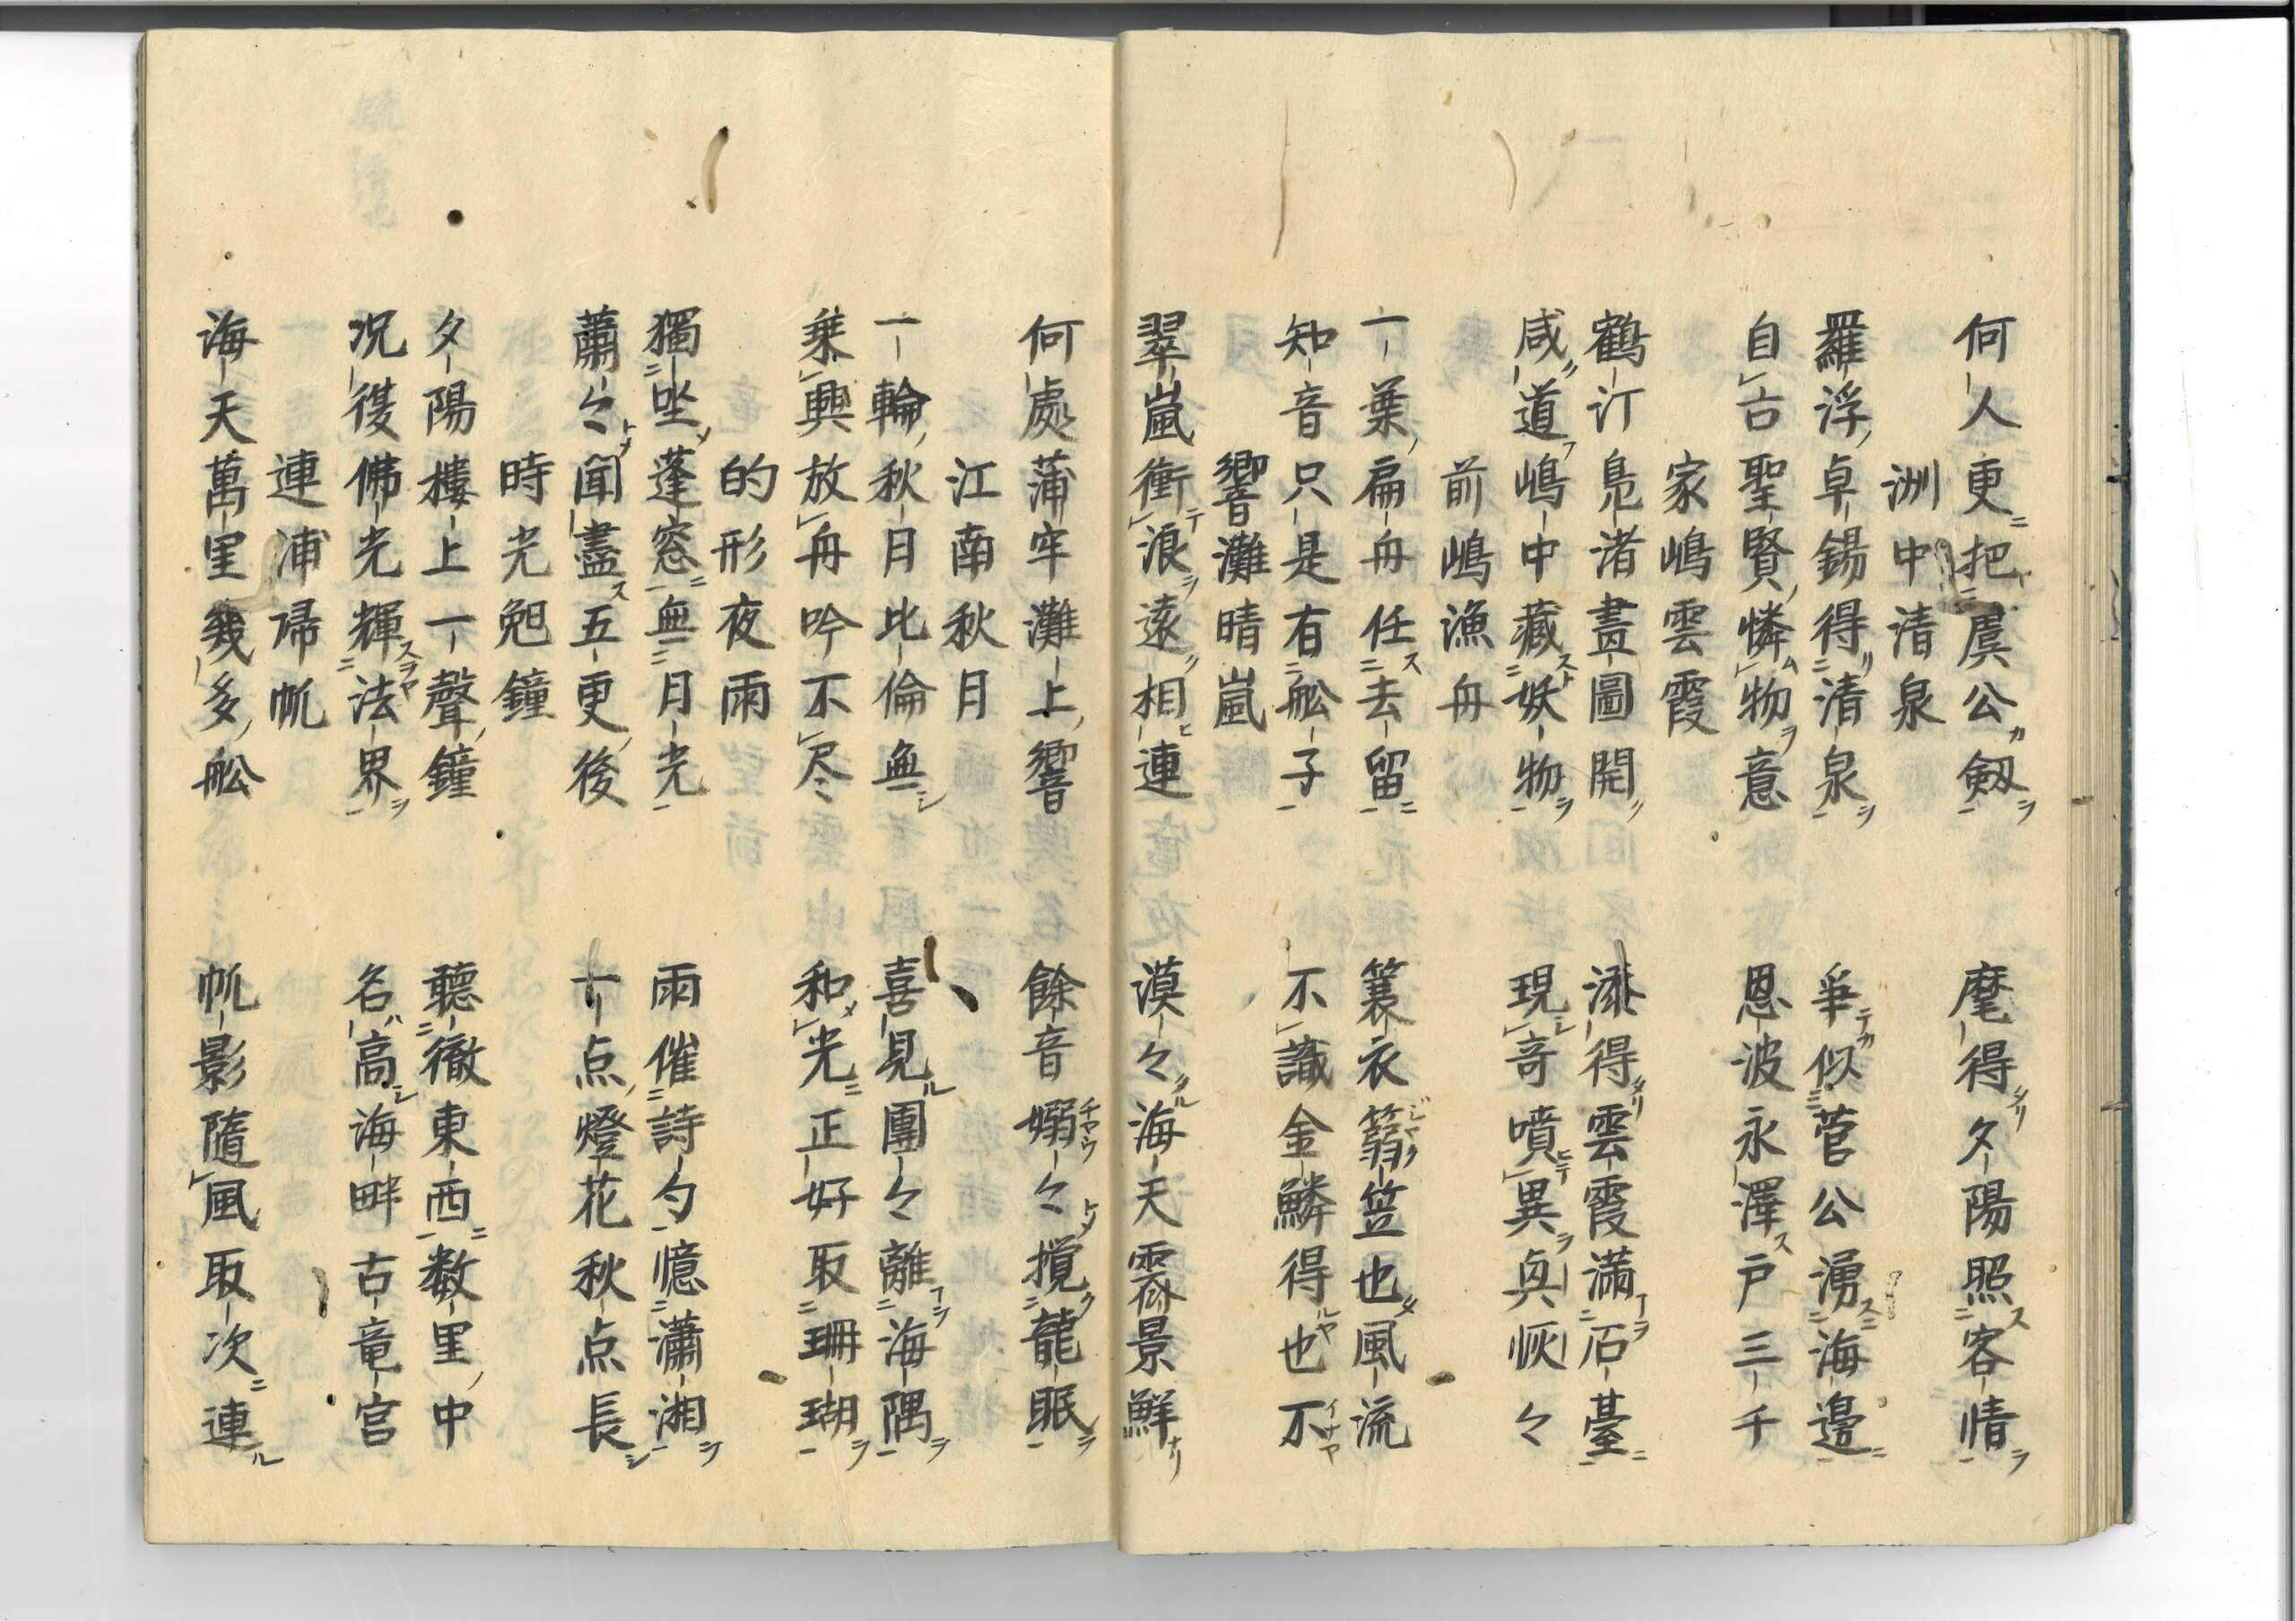 何人更把虞公劔　麾得夕陽照客情
洲中清泉
羅浮卓錫得清泉　争似菅公湧海邊
自古聖賢憐物意　恩波永澤戸三千
家嶋雲霞
鶴汀鳧渚畫圖開　添得雲霞満石臺
咸道嶋中藏妖物　現奇噴異奥恢々
前嶋漁舟
一葉扁舟任去留　簑衣篛笠也風流
知音只是有舩子　不識金鱗得也不
響灘晴嵐
翠嵐衝浪遠相連　漠々海天霽景鮮
何處蒲牢灘上響　餘音嫋々攪龍眠
江南秋月
一輪秋月比倫無　喜見團々離海隅
乗興放舟吟不尽　和光正好取珊瑚
的形夜雨
獨坐蓬窓無月光　雨催詩句憶瀟湘
蕭々聞盡五更後　十点燈花秋点長
時光兜鐘
夕陽樓上一聲鐘　聽徹東西数里中
况復佛光輝法界　名高海畔古竜宮
連浦帰帆
海天萬里幾多舩　帆影隨風取次連